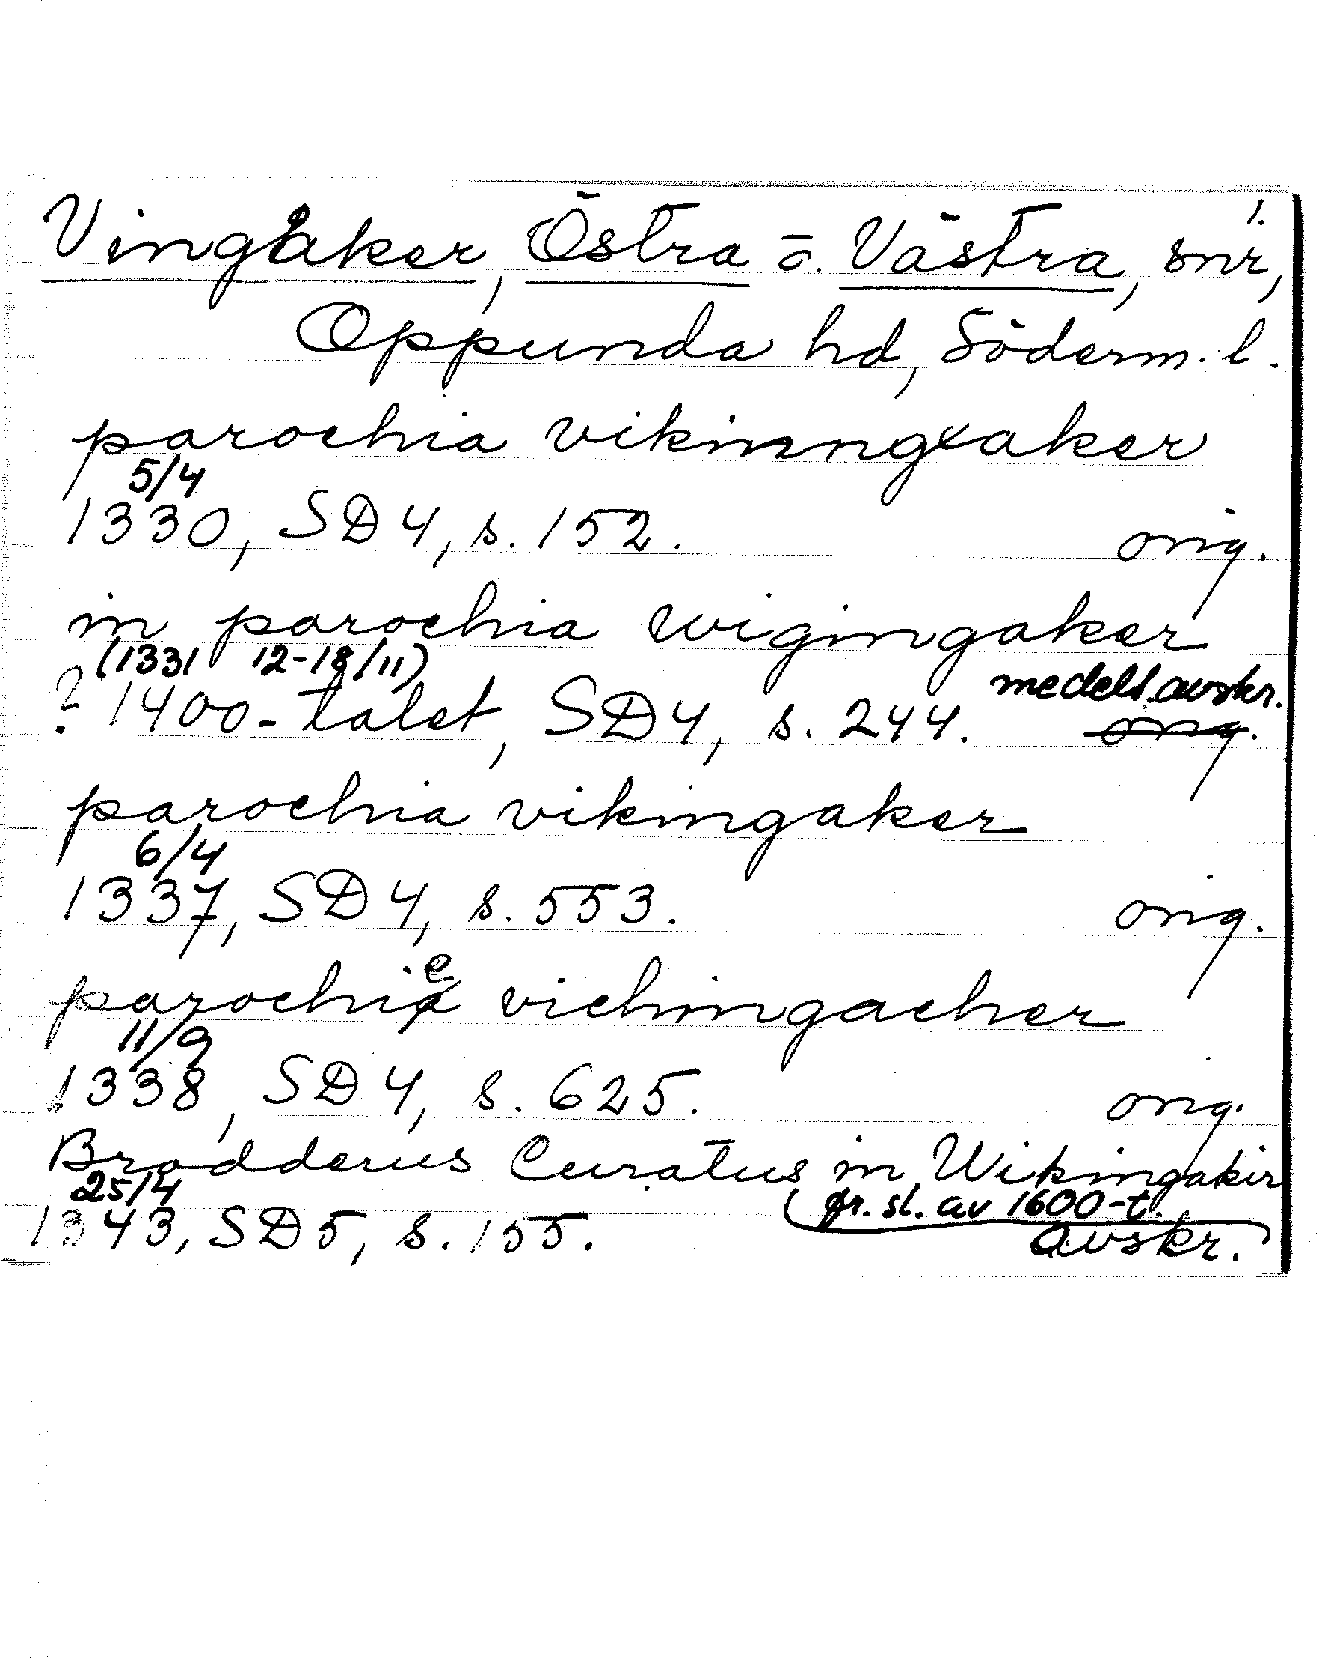 1.
Vingåker, Östra o. Västra, snr,
Oppunda hd, Söderm. l.
parochia vikinngxaker
5/4
1330, SD 4, s. 152. orig.
in parochia wigingaker
(1331 12-18/11) medelt. avskr.
? 1400-talet, SD 4, s. 244. orig.
parochia vikingaker
6/4
1337, SD 4, s. 553. orig.
parochie vichingacher
11/9
1338, SD 4, s. 625. orig.
Brodderus Curatus in Wikingakir
25/4 (fr. sl. av 1600-t.
1343, SD 5, s. 155. avskr.)